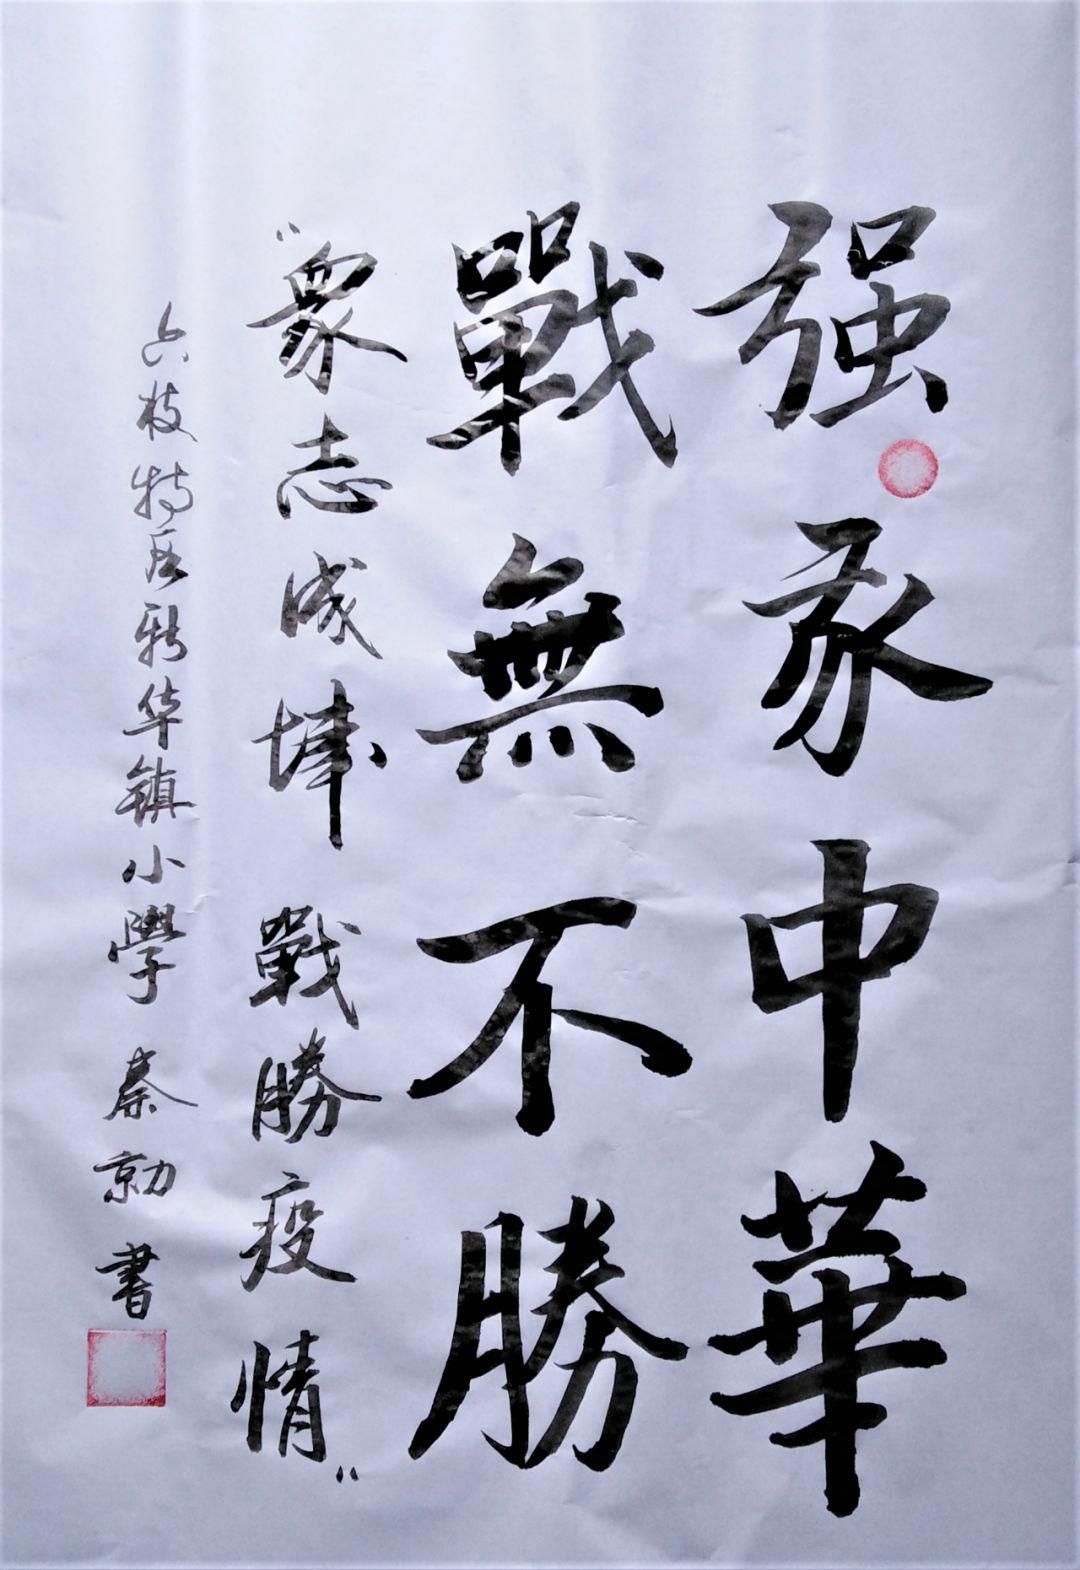 强豕中華
戰無不勝
“眾志成城 戰勝疫情”
六枝特区新华镇小學 秦勍 書